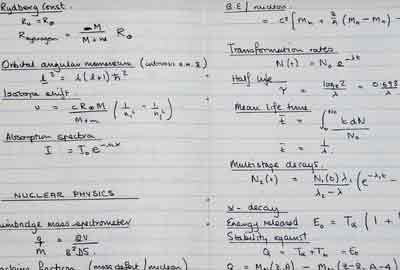 Rydberg Const.
R∞ = R∞
R hydrogen = M / M+m R∞
Orbital angular momentum (intrinsic
l² = l(l+1)ħ²
Isotope shift.
ν = cR∞M / M+m (1/n₁² - 1/n₂²)
Absorption spectra
I = I₀e
NUCLEAR PHYSICS
mass spectrometer
q/M = 2V / B²DS
fraction (mass defect/nucleon)
B.E/nucleon
= c² [Mn + (Mn - Mn) -
Transformation rates
N(t) = N₀ e^-λt
Half life
τ = loge2 / λ = 0.693 / λ
Mean life time
t̄ = ∫ t dN / N₀
t̄ = 1/λ
Multistage decays.
N₂(t) = N₁(0)λ₁ / λ₂-λ (e^-λ₁t -
α-decay
Energy released E₀ = Tα (1 +
Stability against
Q = Tα + Th = E₀
Q = (Z,A) - (Z-2, A-4)